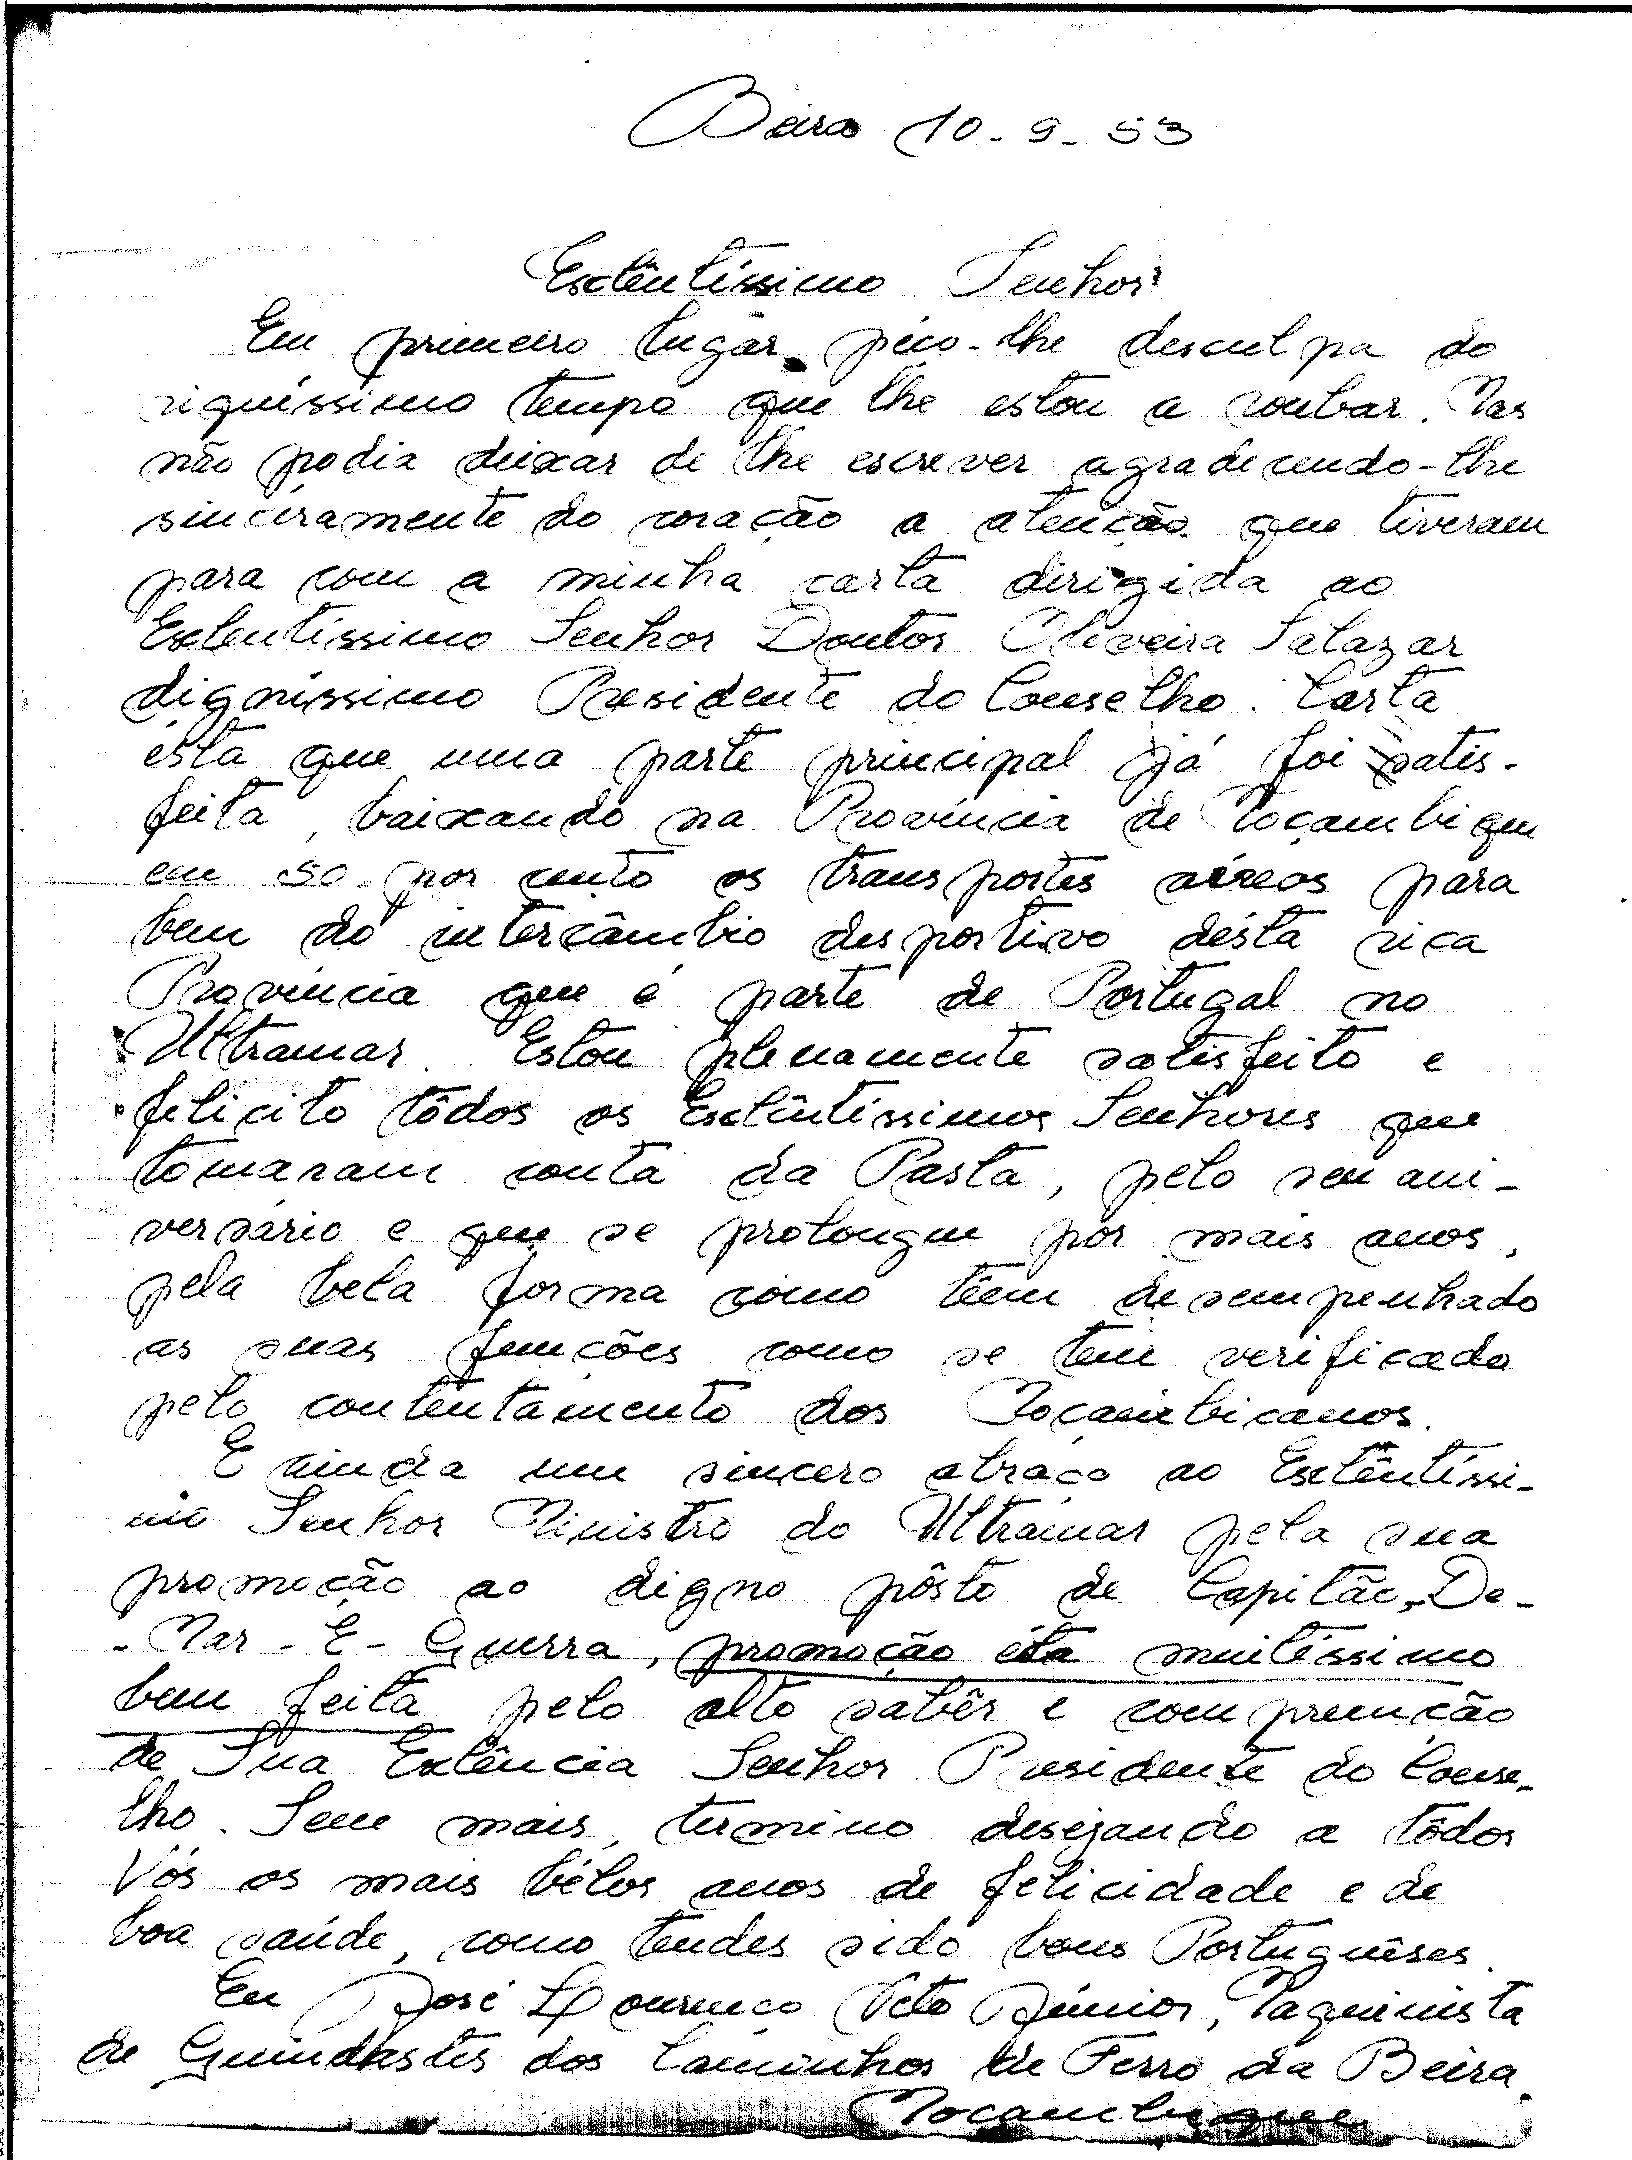 Beira 10-9-53
Exelêntíssimo Senhor
Em primeiro lugar, péço-lhe desculpa do
riquíssimo tempo que lhe estou a roubar. Mas
não podia deixar de lhe escrever agradecendo-lhe
sincéramente do coração a atenção que tiveram
para com a minha carta dirigida ao
Exelentíssimo Senhor Doutor Oliveira Salazar
digníssimo Presidente do Conselho. Carta
ésta que uma parte principal já foi satis-
feita, baixando na Província de Moçambique
em 50 por cento os transportes aéreos para
bem do intercâmbio desportivo désta rica
Província que é parte de Portugal no
Ultramar. Estou plenamente satisfeito e
felicito tôdos os Exelêntíssimos Senhores que
tomaram conta da Pasta, pelo seu ani-
versário e que se prolongue por mais anos,
pela bela forma como têem desempenhado
as suas funções como se tem verificado
pelo contentamento dos Moçambicanos.
E ainda um sincero abraço ao Exelêntíssi-
mo Senhor Ministro do Ultramar pela sua
promoção ao digno pôsto de Capitão-De-
-Mar-E-Guerra, promoção ésta muitíssimo
bem feita pelo alto sabêr e compreenção
de Sua Exelência Senhor Presidente do Conse-
lho. Sem mais, termino desejando a tôdos
Vós os mais bélos anos de felicidade e de
boa saúde, como tendes sido bons Portuguêses.
Eu José Lourenço Neto Júnior, Maquinista
de Guindastes dos Caminhos de Ferro da Beira.
Moçambique